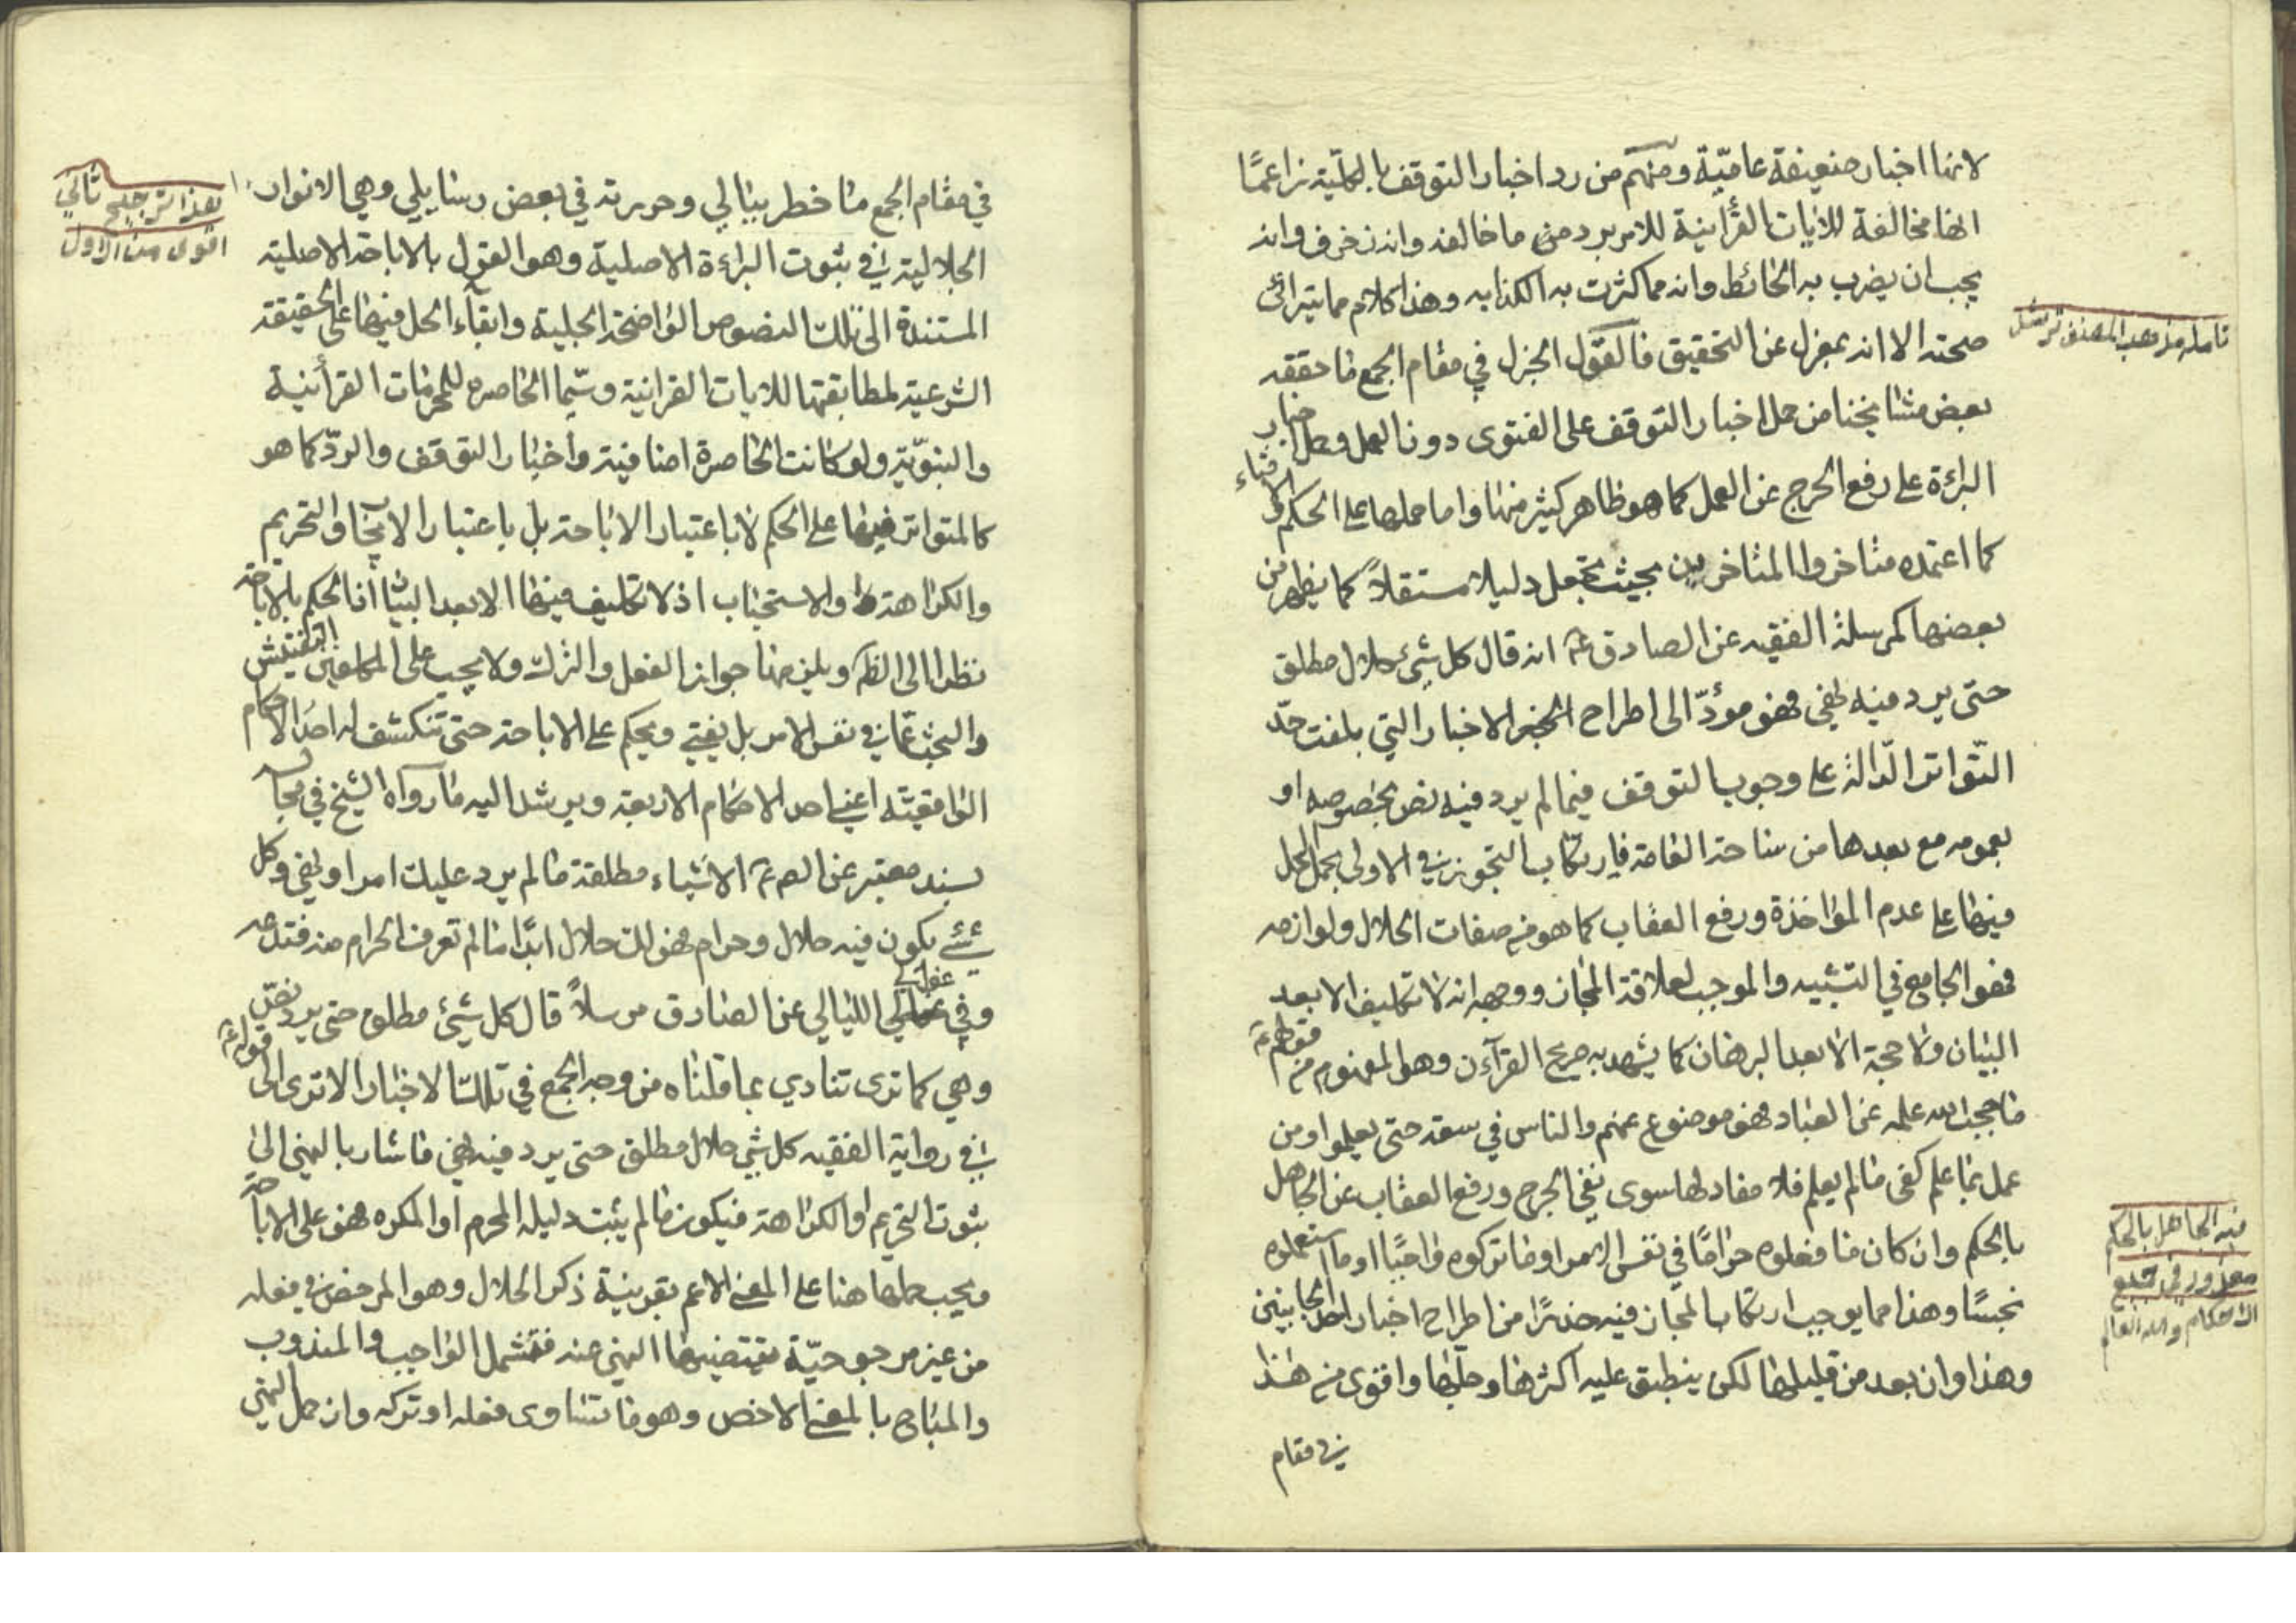 لانها اخبار ضعيفة عاميّة ومنهم من رد اخبار التوقف بالكلّية زاعمًا
انها مخالفة للايات القرآنية للامر برد من ما خالفه وانه زخرف وانه
يجب ان يضرب به الحائط وانه مما كثرت به الكذابه وهذا كلام مما يترائى
صحته الا انه بمعزل عن التحقيق فالقول الجزل في مقام الجمع ما حققه
بعض مشايخنا من حمل اخبار التوقف على الفتوى دون العمل وحمل اخبار
البراءة على رفع الحرج عن العمل كما هو ظاهر كثير منها واما حملها على الحكم والافتاء
كما اعتمده متاخروا المتاخرين بحيث تجعل دليلا مستقلاً كما يظهر من
بعضها كمرسلة الفقيه عن الصادق ع انه قال كل شيء حلال مطلق
حتى يرد فيه نهي فهو مؤدّ الى اطراح الاخبار التي بلغت حدّ
التّواتر الدّالة على وجوب التوقف فيما لم يرد فيه نص بخصوصه او
بعمومه مع بعدها من ساحة العامة فارتكاب التجوز في الاولى بحمل الحل
فيها على عدم المؤاخذة ورفع العقاب كما هو من صفات الحلال ولوازمه
فهو الجامع في التشبيه والموجب لعلاقة المجاز ووجهه انه لا تكليف الا بعد
البيان ولا حجة الا بعد البرهان كما يشهد به صريح القرآن وهو المفهوم من قولهم ع
ما حجب الله علمه عن العباد فهو موضوع عنهم والناس في سعة حتى يعلموا ومن
عمل بما علم كفى ما لم يعلم فلا مفاد لها سوى نفي الحرج ورفع العقاب عن الجاهل
بالحكم وان كان ما فعلوه حرامًا في نفس الامر او ما تركوه واجبًا او ما استعملوه
نجسًا وهذا مما يوجب ارتكاب المجاز فيه حذرًا من اطراح اخبار احد الجانبين
وهذا وان بعد من قليلها لكن ينطبق عليه اكثرها وجلّها واقوى من هذا
في مقام
تامله مذهب المصنف
فيه الجاهل بالحكم
معذور في جميع
الاحكام والله العالم
في مقام الجمع ما خطر ببالي وحررته في بعض رسايلي وهي الانوار
الجلالية في ثبوت البراءة الاصلية وهو القول بالاباحة الاصلية
المستندة الى تلك النصوص الواضحة الجلية وابقاء الحل فيها على الحقيقة
الشرعية لمطابقتها للايات القرانية وسيّما الحاصره للمحرمات القرآنية
والنبويّة ولو كانت الحاصرة اضافية واخبار التوقف والردّ كما هو
كالمتواتر فيها على الحكم لا باعتبار الاباحة بل باعتبار الايجاب والتحريم
والكراهة والاستحباب اذ لا تكليف فيها الا بعد البيان أما الحكم بالاباحة
نظرا الى الظ ويلزمها جواز الفعل والترك ولا يجب على المكلفين التفتيش
والبحث عمّا في نفس الامر بل يفتي ويحكم على الاباحة حتى تنكشف له احد الاحكام
الواقعيّة اعني احد الاحكام الاربعة ويرشد اليه ما رواه الشيخ في مجالسه
بسند معتبر عن الص ع الاشياء مطلقة ما لم يرد عليك امر او نهي وكل
شيء يكون فيه حلال وحرام فهو لك حلال ابدًا ما لم تعرف الحرام منه فتدعه
وفي غوالي اللئالي عن الصادق مرسلاً قال كل شيئ مطلق حتى يرد نصّ
وهي كما ترى تنادي بما قلناه من وجه الجمع في تلك الاخبار الا ترى الى قوله ع
في رواية الفقيه كل شي حلال مطلق حتى يرد فيه نهي فاشار بالنهي الى
ثبوت التحريم او الكراهة فيكون ما لم يثبت دليله المحرم او المكره فهو على الاباحة
ويجب حملها هنا على المعنى الاعم بقرينة ذكر الحلال وهو المرخص في فعله
من غير مرجوحيّة يقتضيها النهي عنه فتشمل الواجب والمندوب
والمباح بالمعنى الاخص وهو ما تساوى فعله او تركه وان حمل النهي
هذا ترجيح ثاني
اقوى من الاول